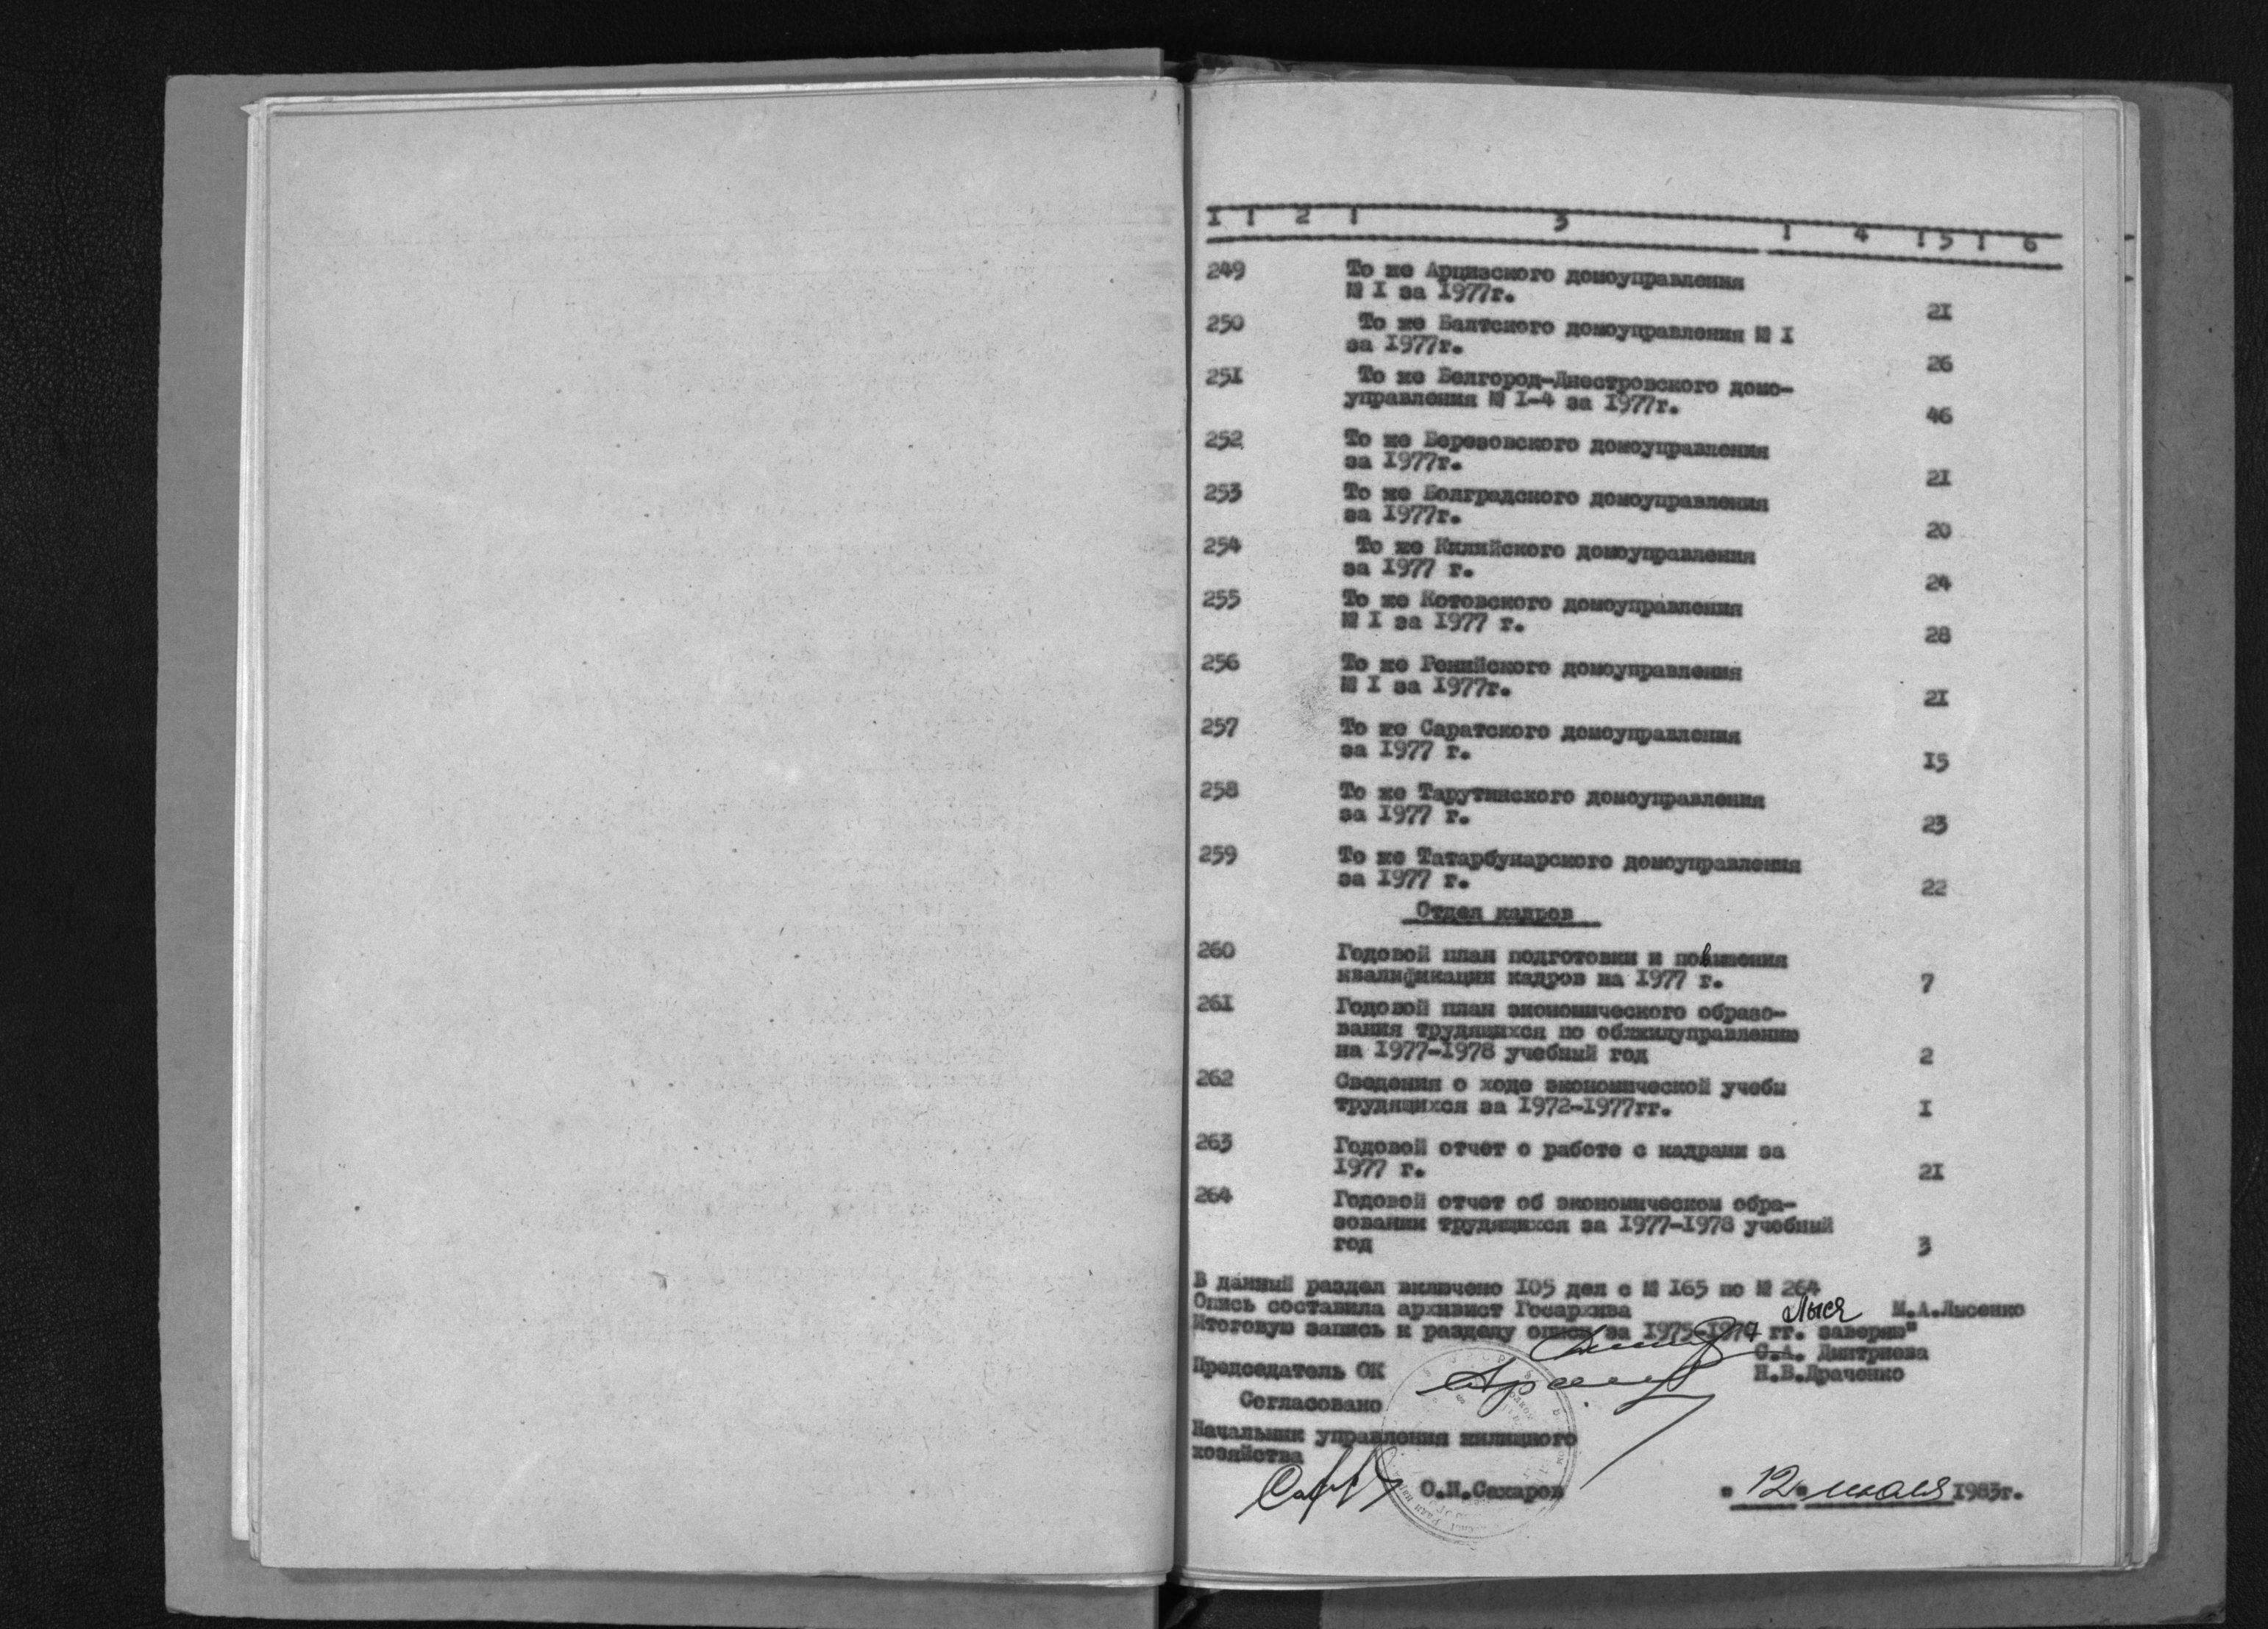 I ! 2 ! 3 ! 4 ! 5 ! 6
249 То же Арцизского домоуправления
№ I за 1977г. 21
250 То же Балтского домоуправления № I
за 1977г. 26
251 То же Белгород-Днестровского домо-
управления № I-4 за 1977г. 46
252 То же Березовского домоуправления
за 1977г. 21
253 То же Болградского домоуправления
за 1977г. 20
254 То же Килийского домоуправления
за 1977 г. 24
255 То же Котовского домоуправления
№ I за 1977 г. 28
256 То же Ренийского домоуправления
№ I за 1977г. 21
257 То же Саратского домоуправления
за 1977 г. 15
258 То же Тарутинского домоуправления
за 1977 г. 23
259 То же Татарбунарского домоуправления
за 1977 г. 22
Отдел кадров
260 Годовой план подготовки и повышения
квалификации кадров на 1977 г. 7
261 Годовой план экономического образо-
вания трудящихся по облжилуправлению
на 1977-1978 учебный год 2
262 Сведения о ходе экономической учебы
трудящихся за 1972-1977гг. I
263 Годовой отчет о работе с кадрами за
1977 г. 21
264 Годовой отчет об экономическом обра-
зовании трудящихся за 1977-1978 учебный
год 3
В данный раздел включено 105 дел с № 165 по № 264
Опись составила архивист Госархива Лысе М.А.Лысенко
Итоговую запись к разделу описи за 1975-1977 гг. заверяю"
С.А. Дмитриева
Председатель ОК Н.В.Драченко
Согласовано
Начальник управления жилищного
хозяйства
О.Н.Сахаров " 12 " июля 1983г.